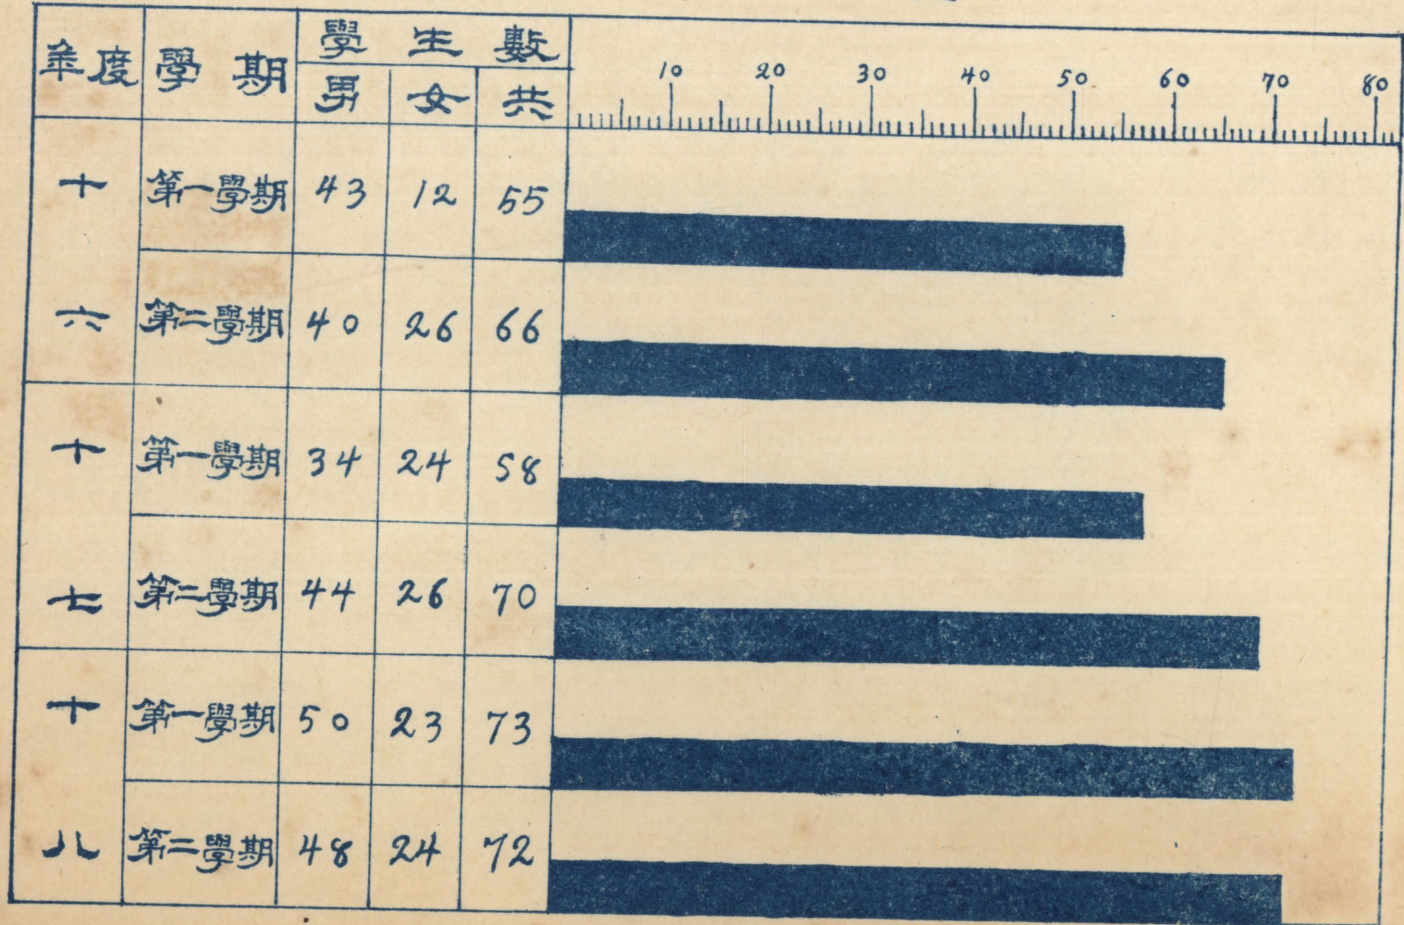 年度 學期 學生數
男 女 共
10 20 30 40 50 60 70 80
十六 第一學期 43 12 55
第二學期 40 26 66
十七 第一學期 34 24 58
第二學期 44 26 70
十八 第一學期 50 23 73
第二學期 48 24 72